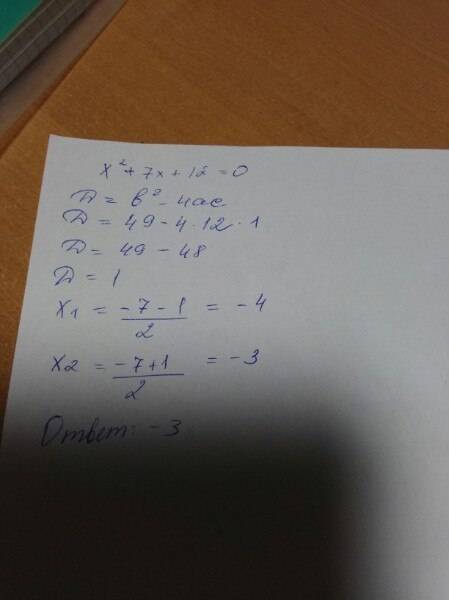 x² + 7x + 12 = 0
D = b² - 4ac
D = 49 - 4 · 12 · 1
D = 49 - 48
D = 1
x1 = (-7 - 1)/2 = -4
x2 = (-7 + 1)/2 = -3
Ответ: -3